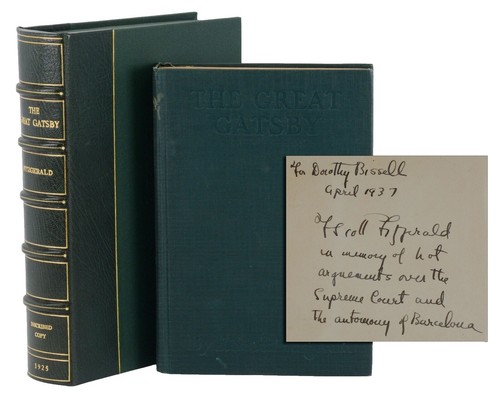 THE
GREAT GATSBY
FITZGERALD
INSCRIBED
COPY
1925
THE GREAT
GATSBY
For Dorothy Bissell
April 1937
F Scott Fitzgerald
in memory of hot
arguements over the
Supreme Court and
the autonomy of Barcelona